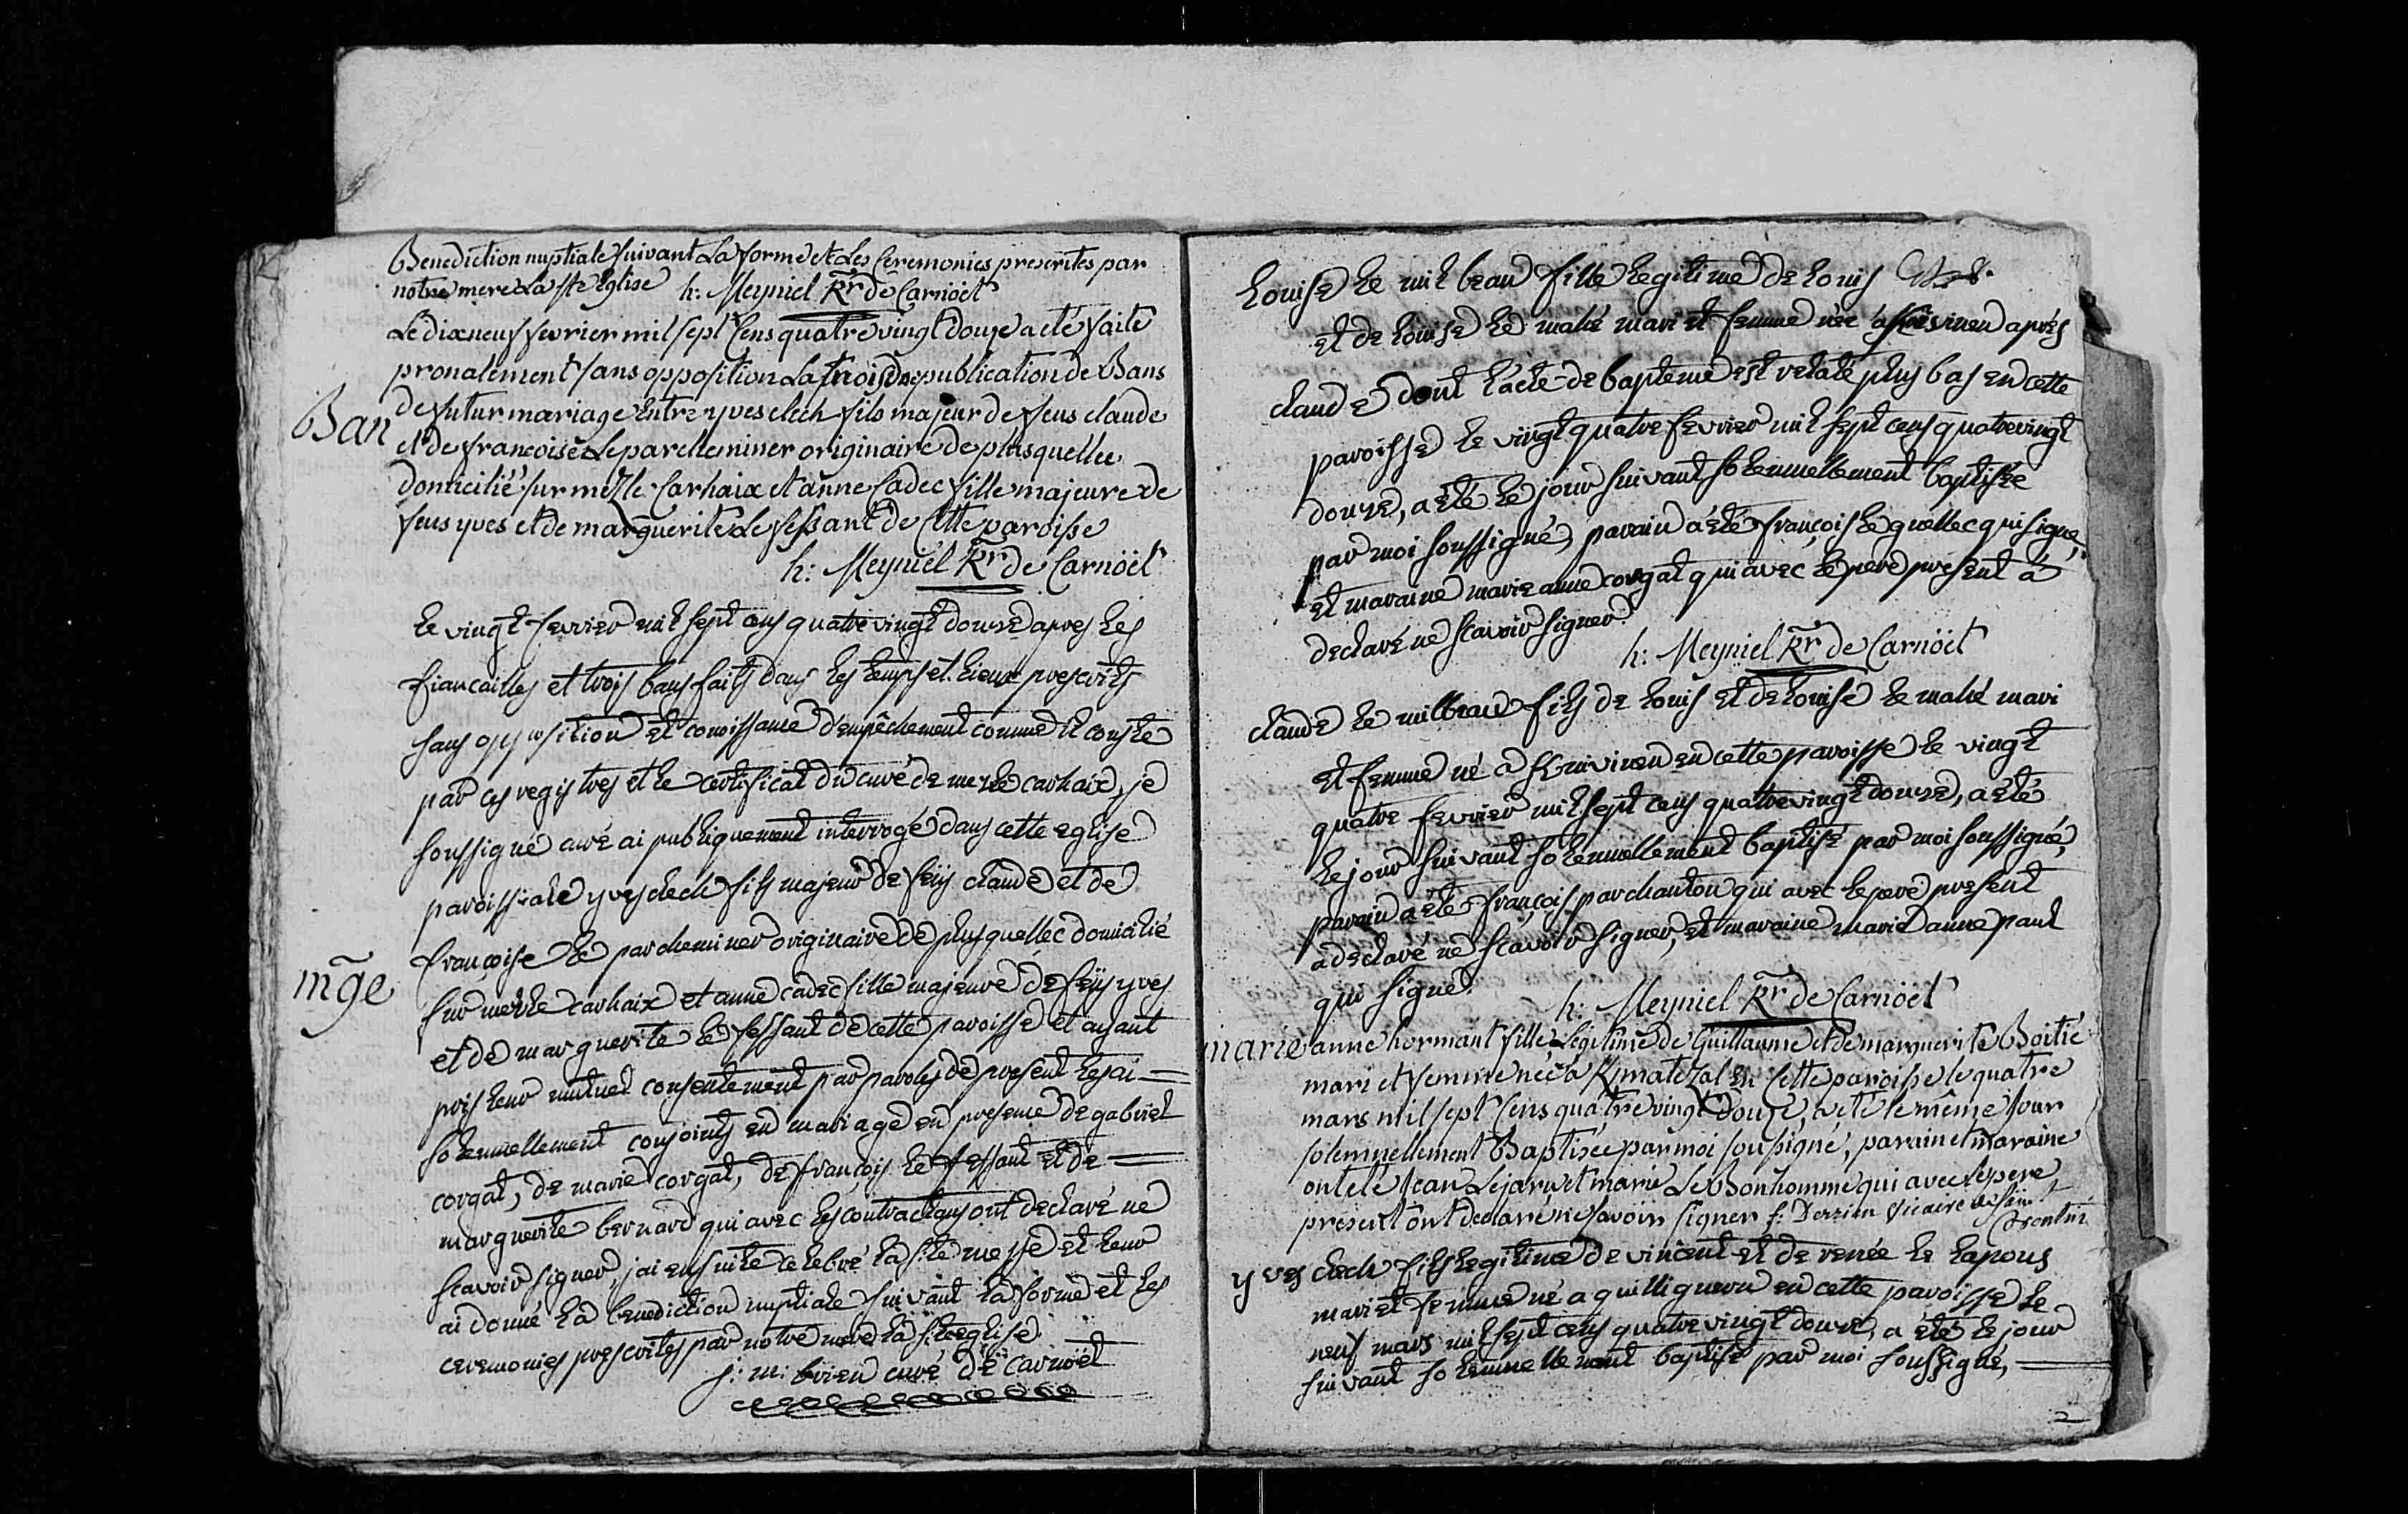 Benediction nuptiale suivant La forme et Les Ceremonies prescrites par
notre mere La ste Eglise h: Meyniel Rr de Carnöet
Le dix neuf fevrier mil sept Cens quatre vingt douze a eté faite
pronalement sans opposition La troisme publication de Bans
Ban
de futur mariage Entre yves clech fils majeur de feus claude
et de francoise Le parcheminer originaire de plusquellec
domicilié sur mezle Carhaix et anne Cadec fille majeure de
feus yves et de marguerite Le fessant de Cette paroisse
h: Meyniel Rr de Carnöet
le vingt fevrier mil sept cens quatre vingt douze apres les
fiancailles et trois bans faits dans les temps et lieux prescrits
sans opposition et conoissance d'empêchement comme il conste
par ces registres et le certificat du curé de mezle carhaix, je
soussigné curé ai publiquement interrogé dans cette eglise
paroissiale yves clech fils majeur de feus claude et de
françoise le parcheminer originaire de plusquellec domicilié
mge
sur mezle carhaix et anne cadec fille majeure de feus yves
et de marguerite le fessant de cette paroisse et ayant
pris leur mutuel consentement par paroles de present les ai
solennellement conjoints en mariage en presence de gabriel
corgat, de marie corgat, de françois le fessant et de
marguerite bernard qui avec les contractans ont declaré ne
scavoir signer, j'ai ensuite celebré la ste messe et leur
ai donné la benediction nuptiale suivant la forme et les
ceremonies prescrites par notre mere la ste eglise
j: m: brien curé de carnöet
Louise le milbeau fille legitime de louis
et de louise le mahé mari et femme née à aprés
claude dont l'acte de bapteme est relaté plus bas en cette
paroisse le vingt quatre fevrier mil sept cens quatre vingt
douze, a eté le jour suivant solennellement baptisée
par moi soussigné, parain a eté françois le quellec qui signe,
et maraine marie anne corgat qui avec le pere present a
declaré ne scavoir signer
h: Meyniel Rr de Carnöet
claude le milbeau fils de louis et de louise le mahé mari
et femme né a en cette paroisse le vingt
quatre fevrier mil sept cens quatre vingt douze, a eté
le jour suivant solennellement baptisé par moi soussigné,
parain a eté françois parchantou qui avec le pere present
a declaré ne scavoir signer, et maraine marie anne paul
qui signe
h: Meyniel Rr de Carnöet
marie anne hormant fille Legitime de Guillaume et de marguerite Boitié
mari et femme née à en Cette paroisse le quatre
mars mil sept Cens quatre vingt Douze, a eté le même jour
solemnellement Baptisée par moi sousigné, parain et maraine
ont eté Jean Lejaru et marie Le Bonhomme qui avec le pere
present ont declaré ne savoir signer f: Derrien Vicaire de
yves clech fils legitime de vincent et de renée le lapous
mari et femme né a quilligueru en cette paroisse le
neuf mars mil sept cens quatre vingt douze, a eté le jour
suivant solennellement baptisé par moi soussigné,